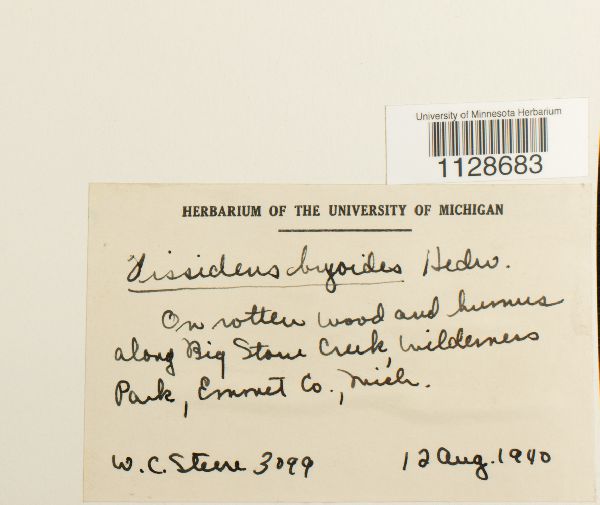 University of Minnesota Herbarium
1128683
HERBARIUM OF THE UNIVERSITY OF MICHIGAN
Fissidens bryoides Hedw.
On rotten wood and humus
along Big Stone Creek, Wilderness
Park, Emmet Co., Mich.
W. C. Steere 3099 12 Aug. 1940